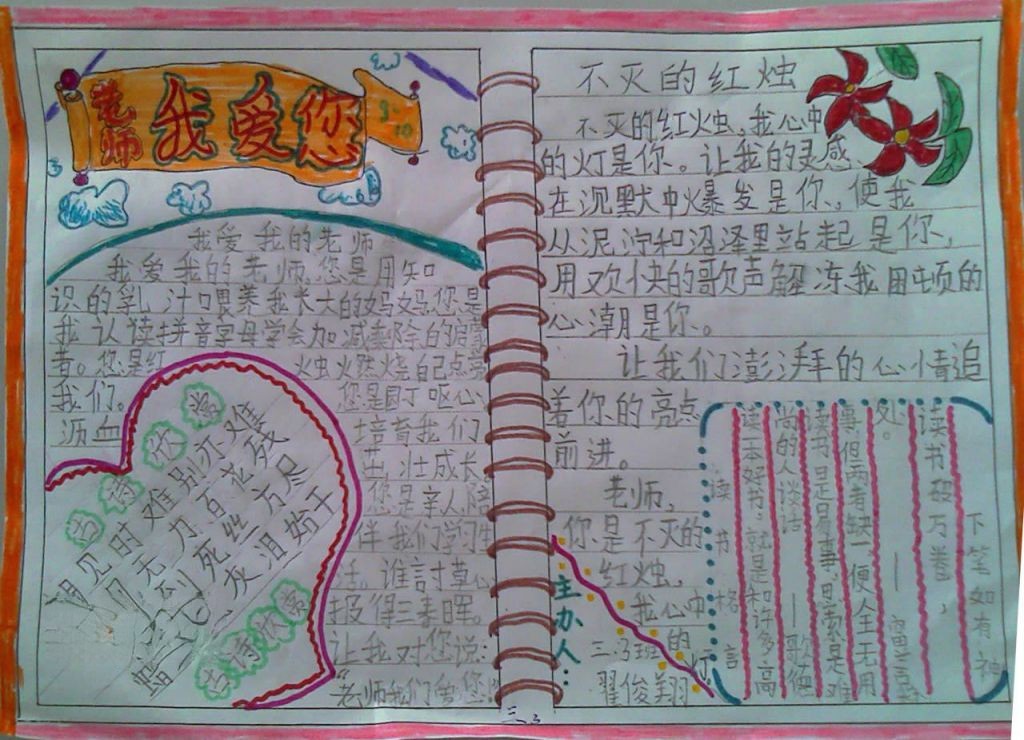 老师
我爱您
9.10
我爱我的老师
我爱我的老师,您是用知
识的乳汁喂养我长大的妈妈,您是
我认读拼音字母学会加减乘除的启蒙
者。您是红烛火然烧自己点亮
我们。您是园丁呕心
沥血培育我们
茁壮成长
您是亲人陪
伴我们学习生
活。谁言寸草心,
报得三春晖。
让我对您说:
“老师我们爱您!
古诗欣赏
相见时难别亦难
风无力百花残
到死丝方尽
蜡 灰泪始干
古诗欣赏
不灭的红烛
不灭的红烛,我心中
的灯是你。让我的灵感
在沉默中爆发是你,使我
从泥泞和沼泽里站起是你,
用欢快的歌声解冻我困顿的
心潮是你。
让我们澎湃的心情追
着你的亮点
前进。
老师,
你是不灭的
红烛,
我心中
的
灯
主办人:
三.3班
翟俊翔
读书格言
读书破万卷,
下笔如有神
处。
读书是只有事,思索是难
事,但两者缺一,便全无用
——富兰克林
读一本好书,就是和许多高
尚的人谈话 ——歌德
三.3